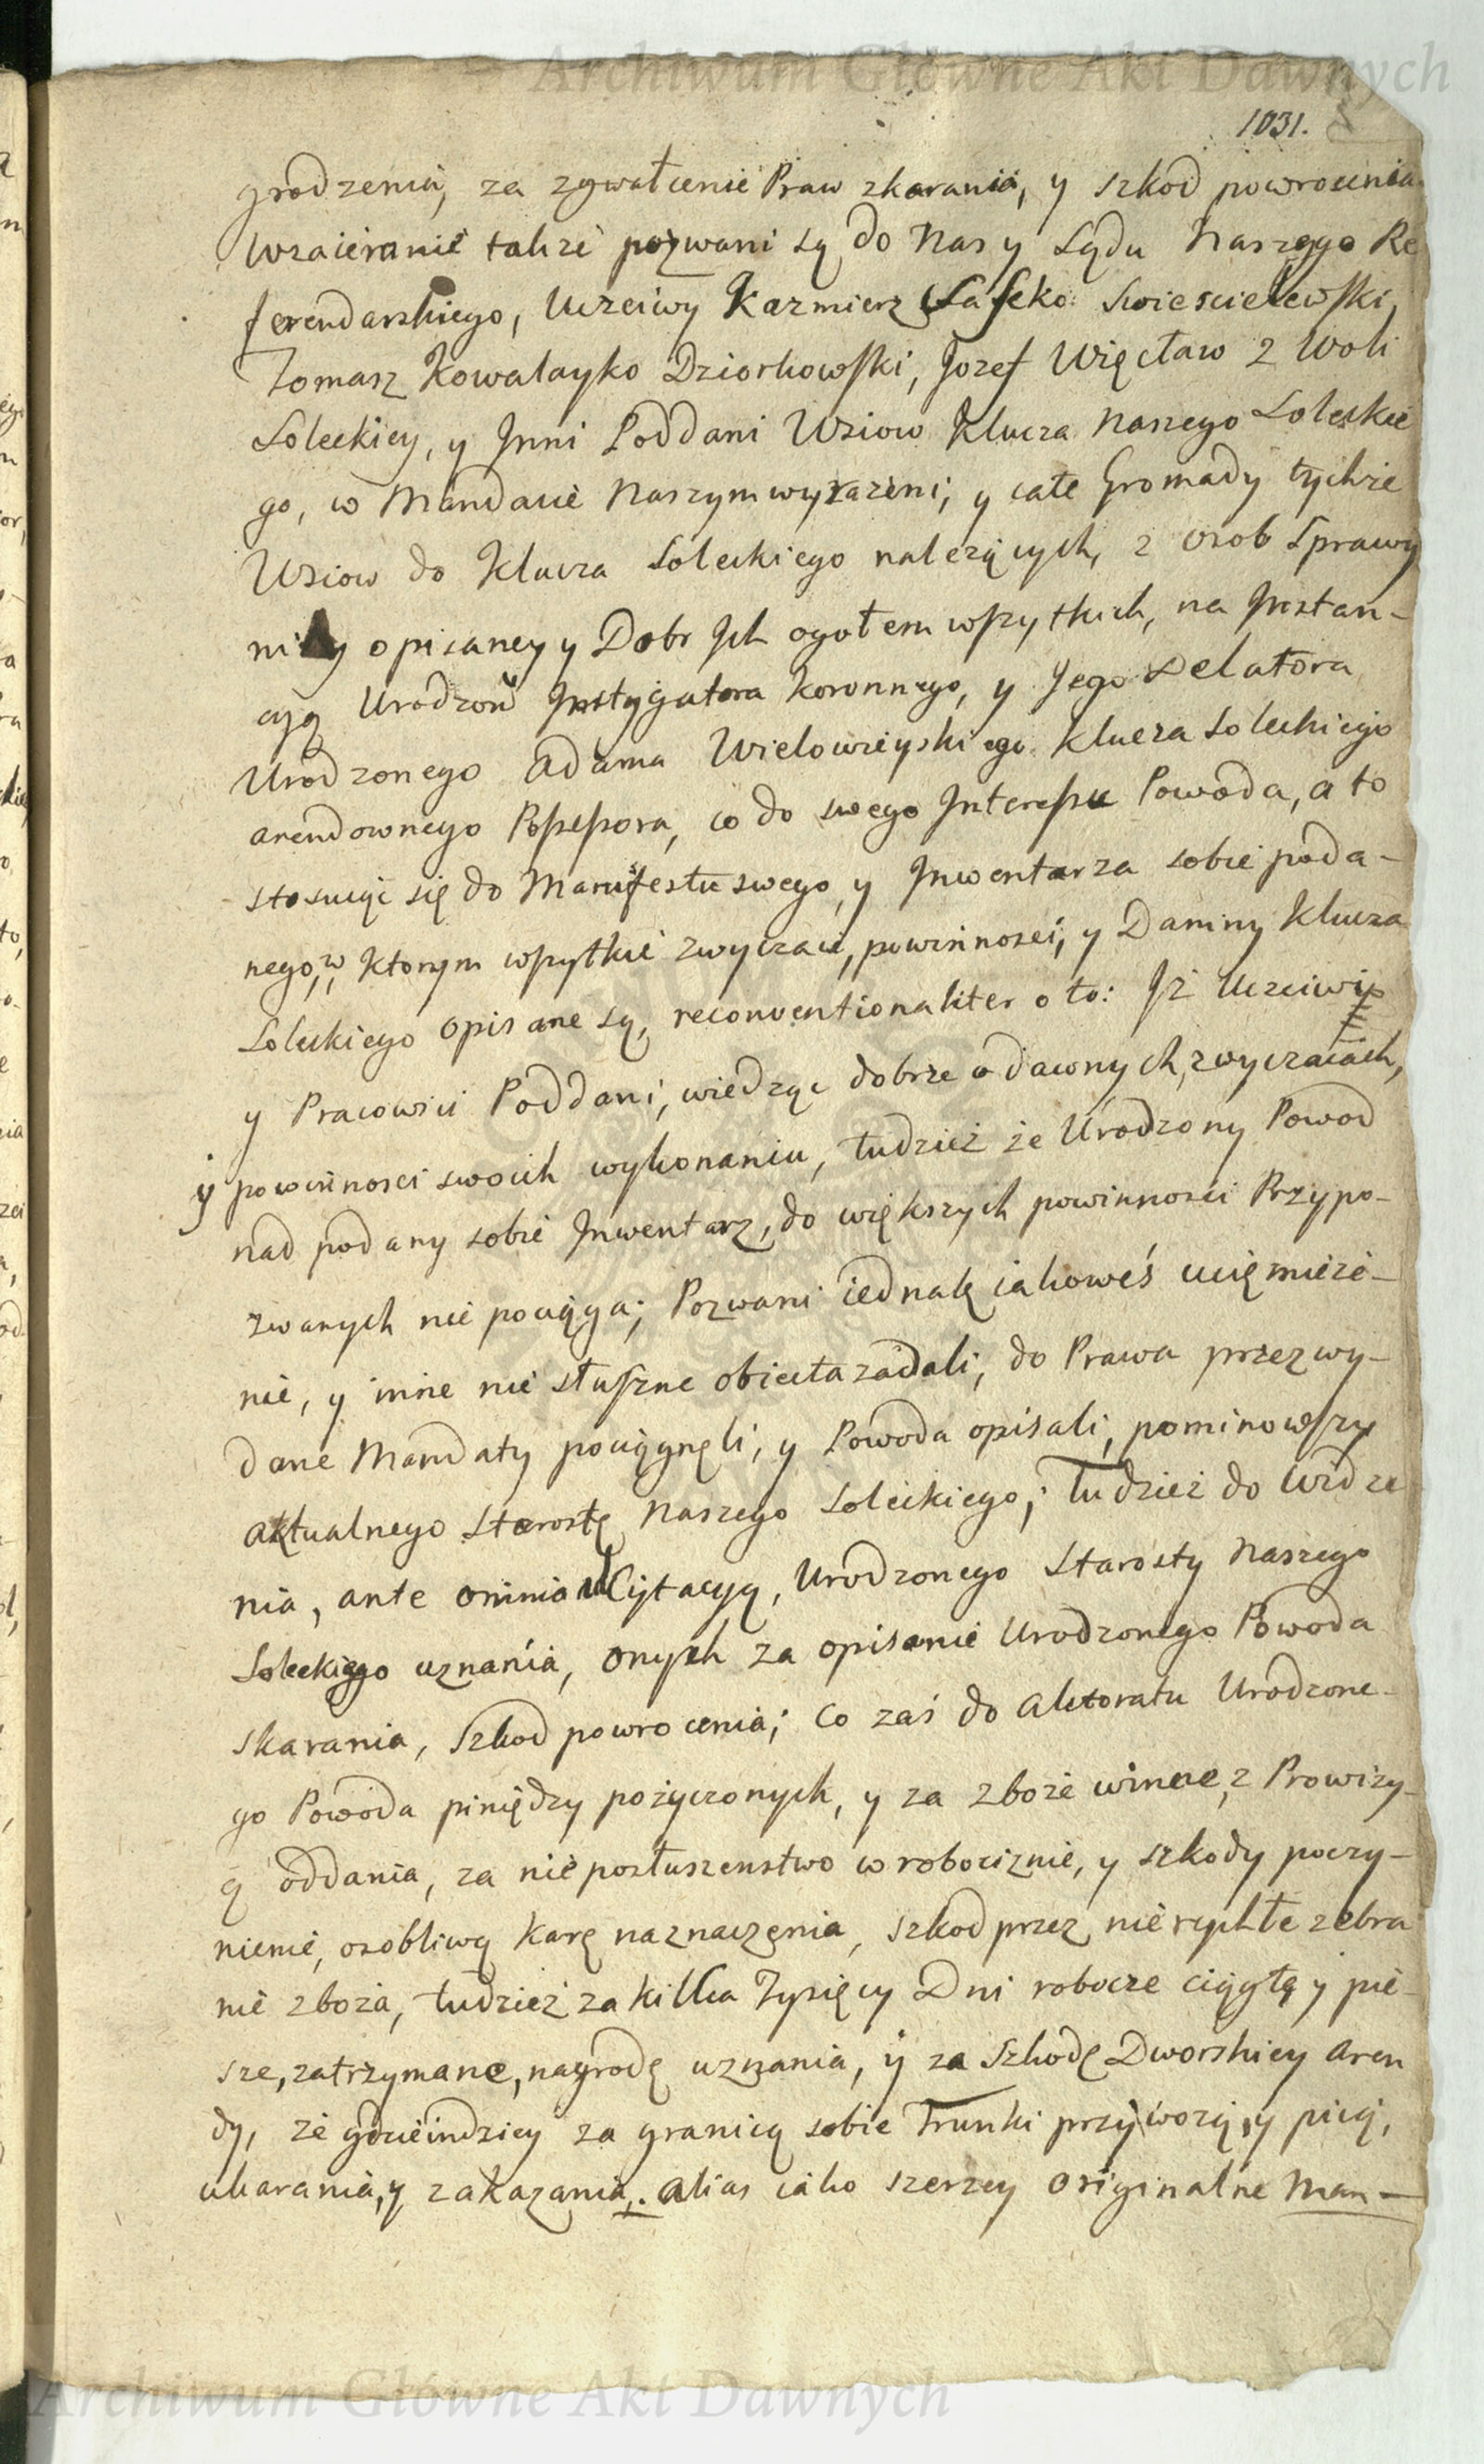 Archiwum Główne Akt Dawnych
1031.
grodzenia, za zgwałcenie Praw zkarania, y szkod powrocenia
Wzaiemnie takze pozwani są do Nas y Sądu Naszego Re
ferendarskiego, Uczciwy Kazmierz Safeko Swiescielewski,
Tomasz Kowalayko Dziorkowski, Jozef Więcław z Woli
Soleckiey, y Inni Poddani Wsiow Klucza Naszego Soleckie
go, w Mandacie Naszym wyrazeni, y całe Gromady tychze
Wsiow do Klucza Soleckiego nalezących, z osob Sprawy
niny opisaney y Dobr Ich ogołem wszytkich, na Instan-
cyą Urodzon Instygatora Koronnego, y Jego Delatora
Urodzonego Adama Wielowieyskiego Klucza Soleckiego
arendownego Possessora, co do swego Interessu Powoda, a to
stosuiąc się do Manifestu swego, y Inwentarza sobie poda-
nego, w ktorym wszytkie zwyczaie, powinnosci, y Daniny Klucza
Soleckiego opisane są, reconventionaliter o to: Iż Uczciwi
y Pracowici Poddani, wiedząc dobrze o dawnych zwyczaiach,
y powinnosci swoich wykonaniu, tudzież że Urodzony Powod
nad podany sobie Inwentarz, do większych powinnosci Przypo-
zwanych nie pociąga; Pozwani iednak iakoweś uciemięże-
nie, y inne nie słuszne obiecta zadali, do Prawa przez wy-
dane Mandaty pociągnęli, y Powoda opisali, pominowszy
aktualnego Starostę Naszego Soleckiego; Tudzież do Widze
nia, ante omnia Cytacyą, Urodzonego Starosty Naszego
Soleckiego uznania, onych za opisanie Urodzonego Powoda
skarania, Szkod powrocenia; Co zaś do Aktoratu Urodzone-
go Powoda piniędzy pożyczonych, y za zboże winne, z Prowizy-
ą oddania, za nieposłuszenstwo w robociznie, y szkody poczy-
nienie, osobliwą karę naznaczenia, szkod przez nierychłe zebra
nie zboża, tudzież za kilka Tysięcy Dni robocze ciągłą y pie-
sze, zatrzymane, nagrodę uznania, y za Szkodę Dworskiey Aren
dy, że gdzieindziey za granicą sobie Trunki przywożą, y piią,
ukarania, y zakazania. Alias iako szerzey originalne Man-
Archiwum Główne Akt Dawnych